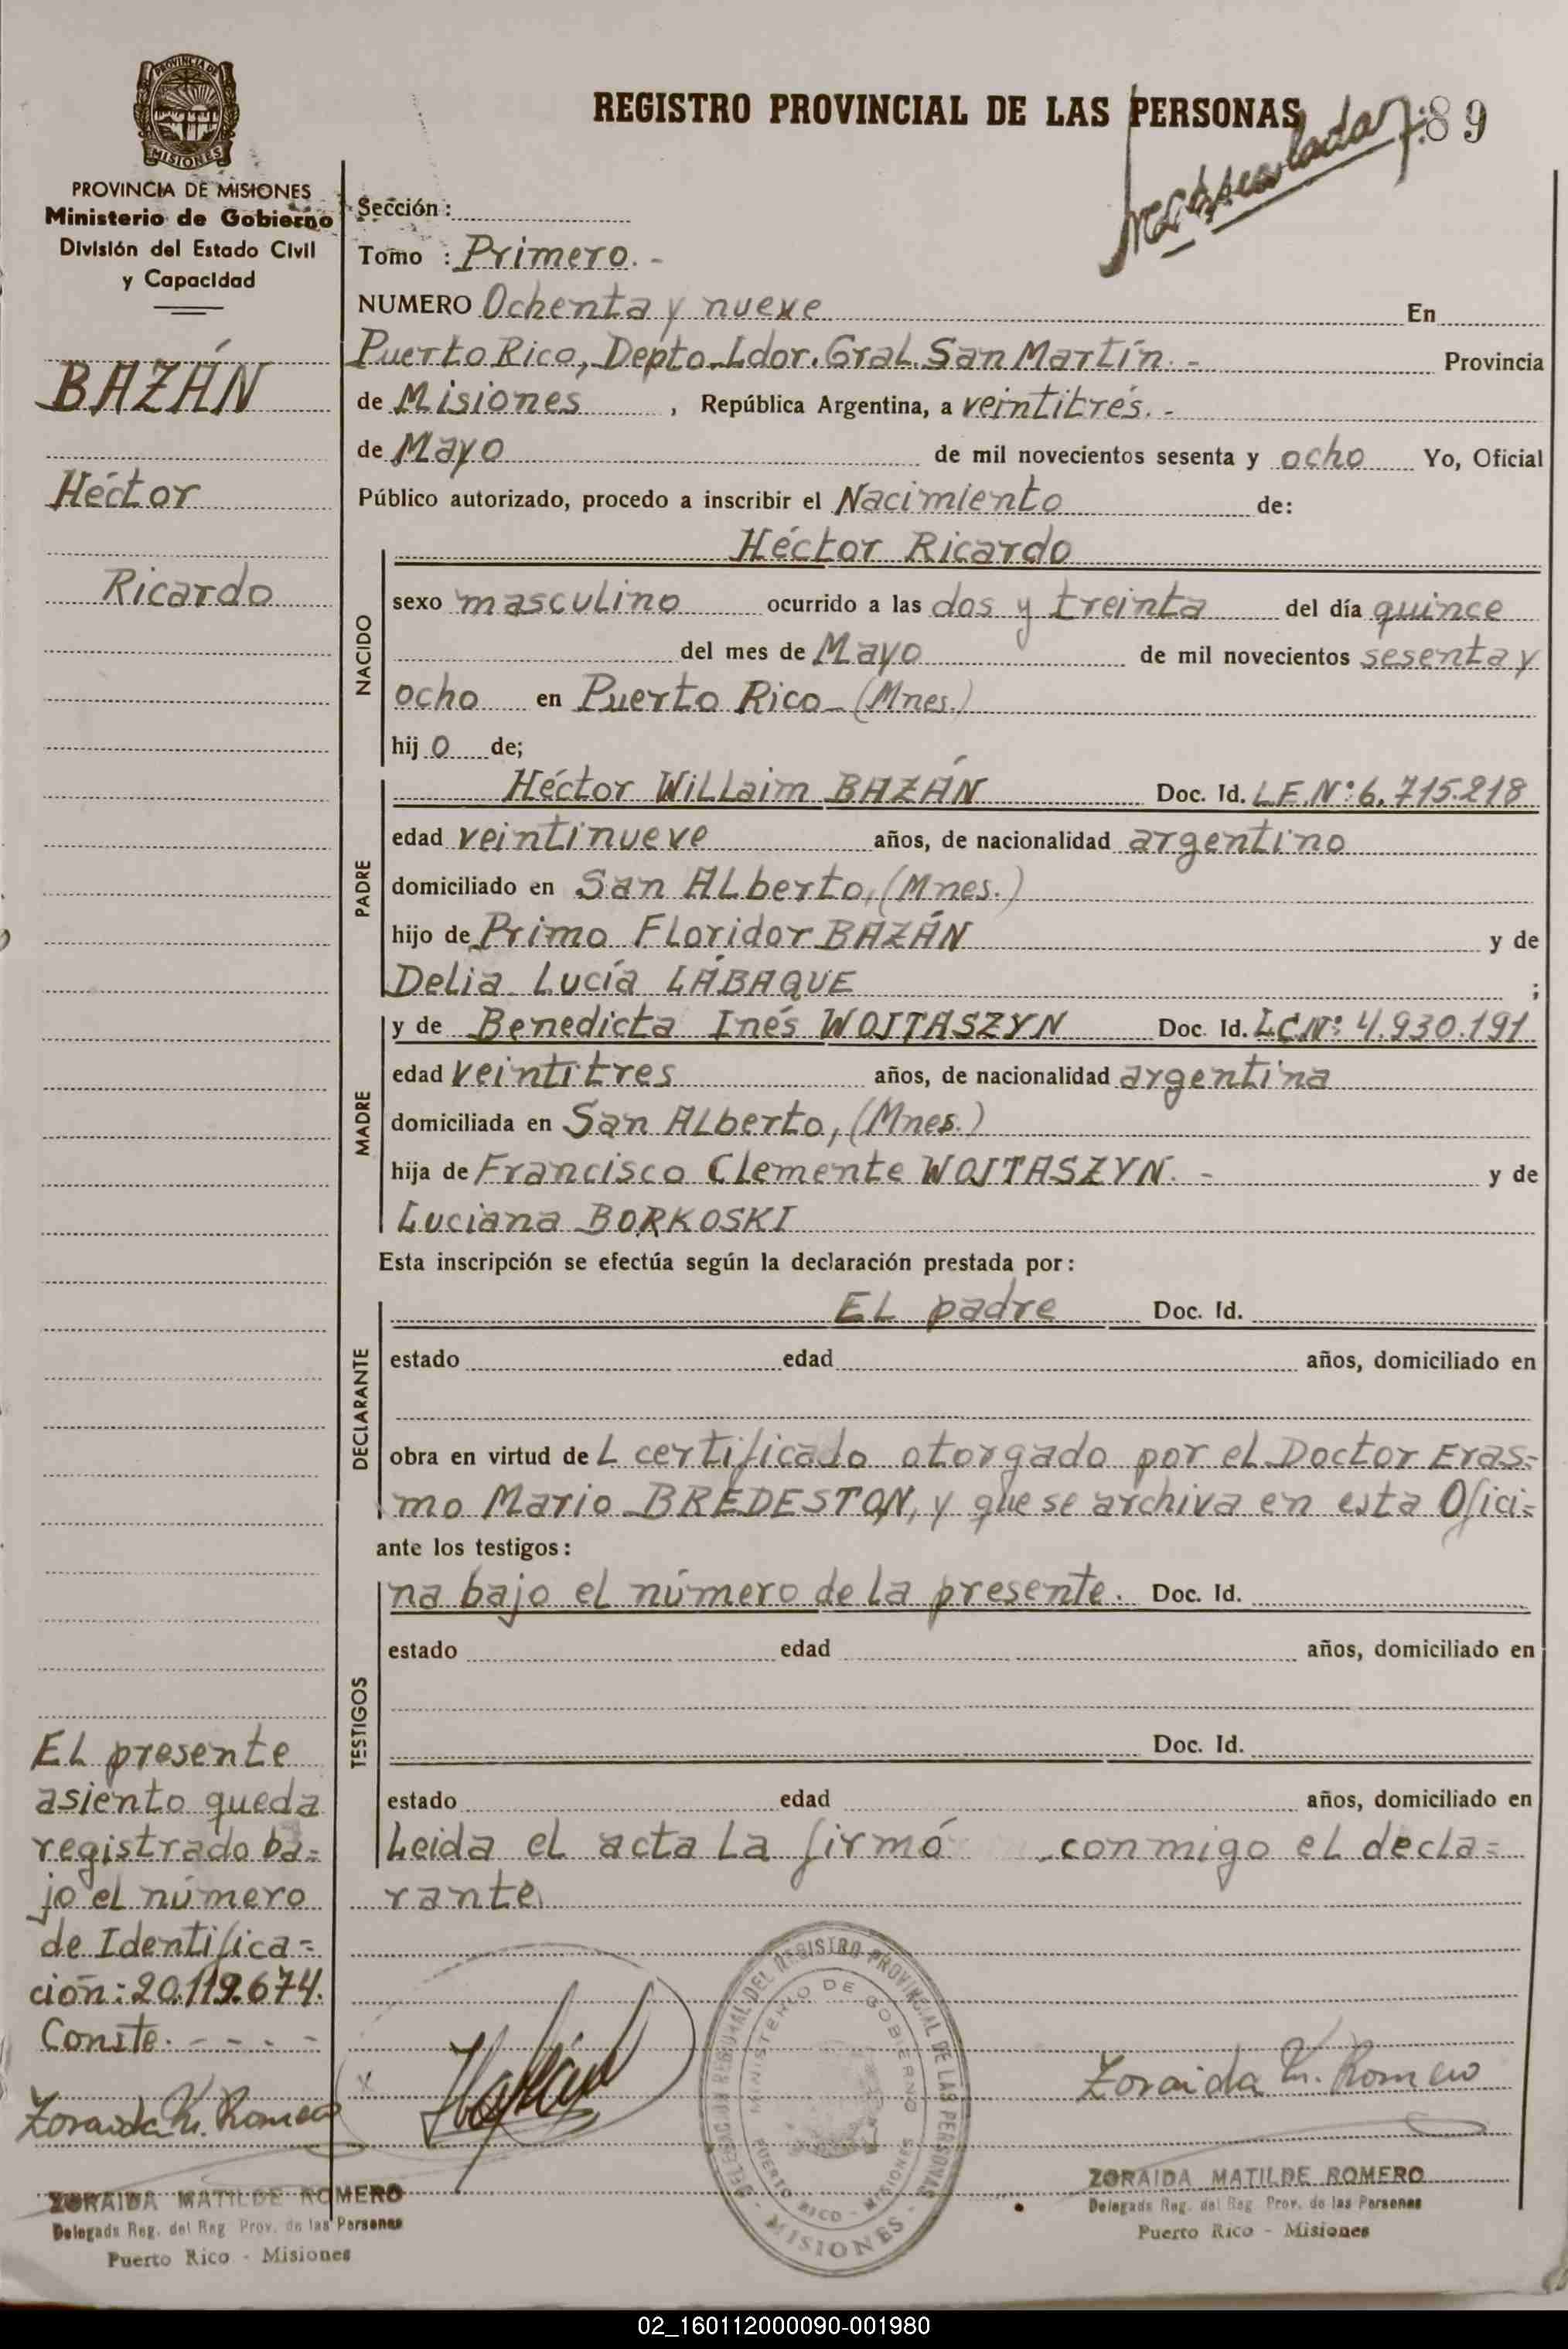 REGISTRO PROVINCIAL DE LAS PERSONAS
89
PROVINCIA DE
MISIONES
PROVINCIA DE MISIONES
Ministerio de Gobierno
División del Estado Civil
y Capacidad
BAZÁN
Héctor
Ricardo
Sección:
Tomo : Primero. -
NUMERO Ochenta y nueve En
Puerto Rico, Depto. Ldor. Gral. San Martín. - Provincia
de Misiones , República Argentina, a veintitrés. -
de Mayo de mil novecientos sesenta y ocho Yo, Oficial
Público autorizado, procedo a inscribir el Nacimiento de:
NACIDO
Héctor Ricardo
sexo masculino ocurrido a las dos y treinta del día quince
del mes de Mayo de mil novecientos sesenta y
ocho en Puerto Rico - (Mnes.)
hijo de;
PADRE
Héctor Willaim BAZÁN Doc. Id. L.E. Nº: 6.715.218
edad veintinueve años, de nacionalidad argentino
domiciliado en San Alberto, (Mnes.)
hijo de Primo Floridor BAZÁN y de
Delia Lucía LÁBAQUE ;
MADRE
y de Benedicta Inés WOJTASZYN Doc. Id. L.C. Nº: 4.930.191
edad veintitres años, de nacionalidad argentina
domiciliada en San Alberto, (Mnes.)
hija de Francisco Clemente WOJTASZYN. - y de
Luciana BORKOSKI
Esta inscripción se efectúa según la declaración prestada por:
DECLARANTE
El padre Doc. Id.
estado edad años, domiciliado en
obra en virtud de l certificado otorgado por el Doctor Eras=
mo Mario BREDESTON, y que se archiva en esta Ofici=
ante los testigos:
TESTIGOS
na bajo el número de la presente. Doc. Id.
estado edad años, domiciliado en
Doc. Id.
estado edad años, domiciliado en
Leida el acta la firmó conmigo el decla=
rante
El presente
asiento queda
registrado ba=
jo el número
de Identifica=
ción: 20.119.674.
Conste. - - - -
Zoraida M. Romero
ZORAIDA MATILDE ROMERO
Delegada Reg. del Reg. Prov. de las Personas
Puerto Rico - Misiones
DELEGACION REGIONAL DEL REGISTRO PROVINCIAL DE LAS PERSONAS
MINISTERIO DE GOBIERNO
PUERTO RICO - MISIONES
- MISIONES -
Zoraida M. Romero
ZORAIDA MATILDE ROMERO
Delegada Reg. del Reg. Prov. de las Personas
Puerto Rico - Misiones
02_160112000090-001980